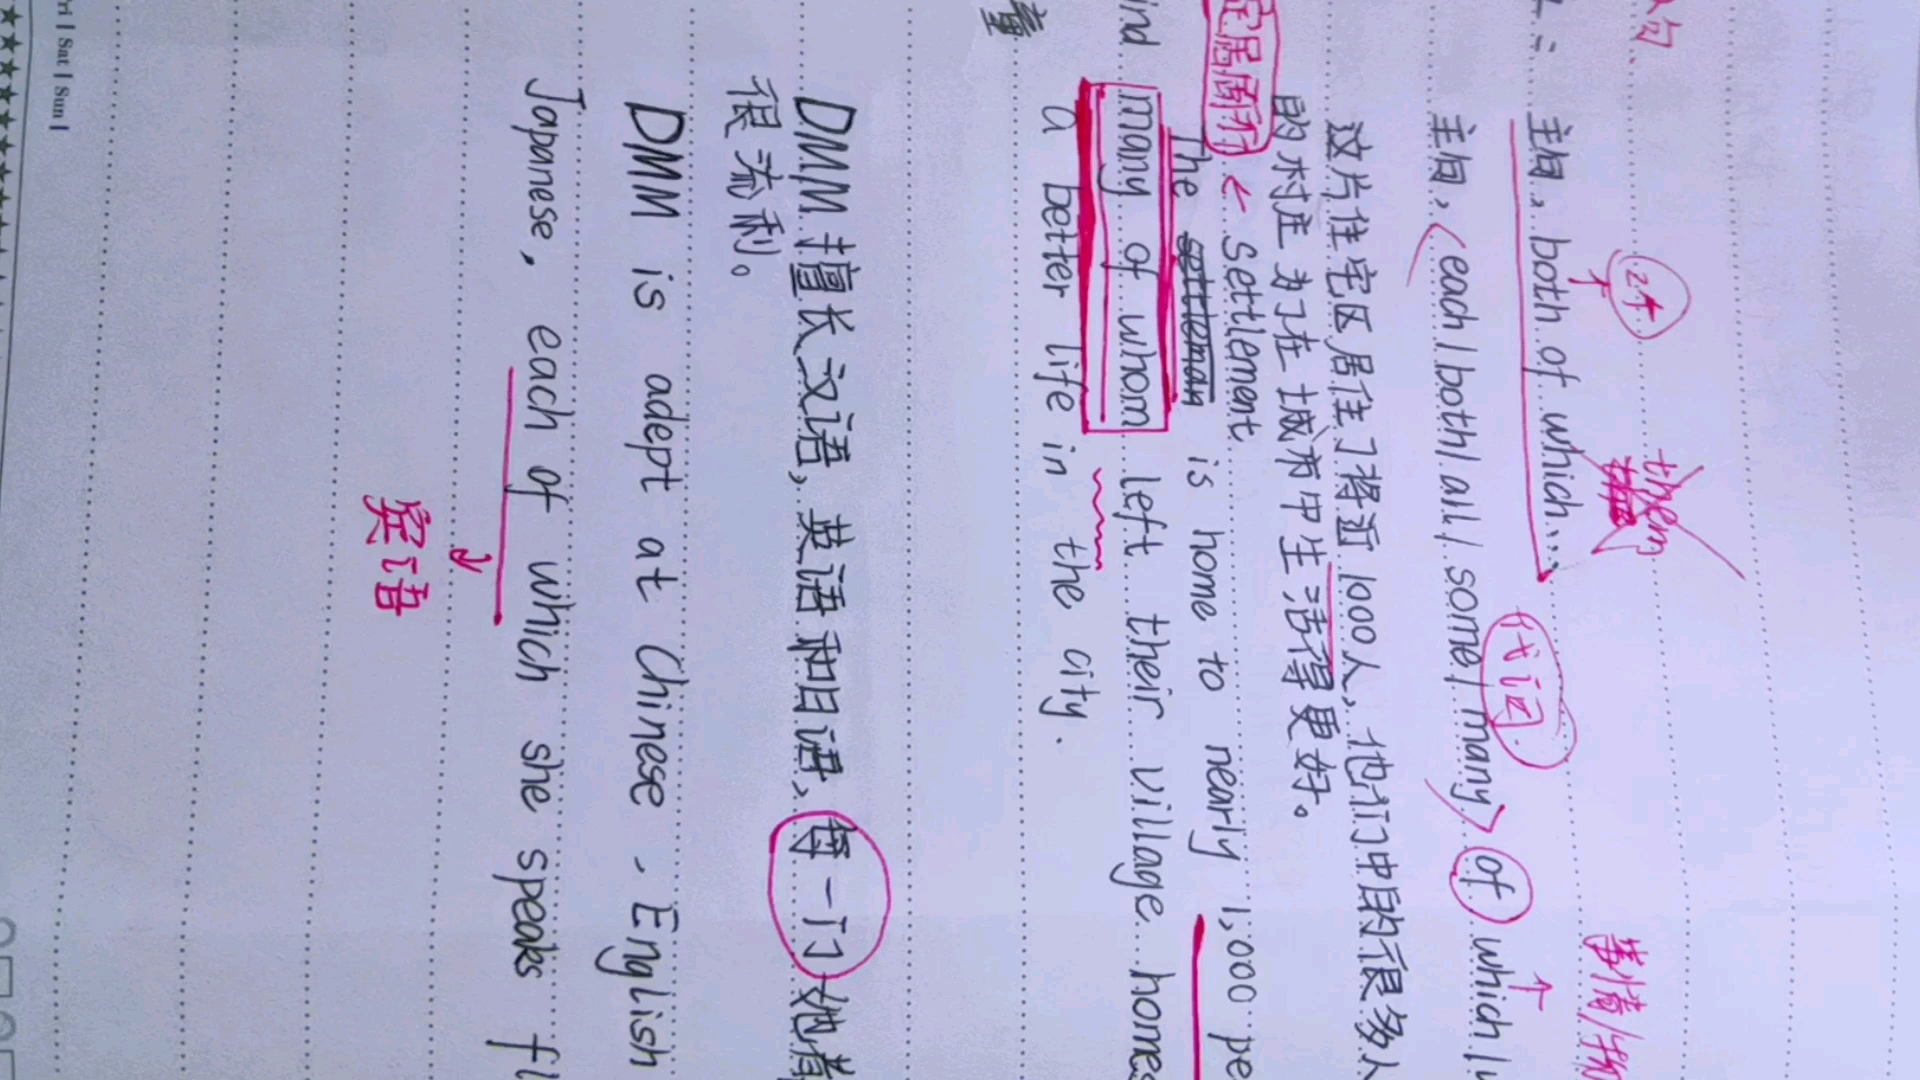 从句
主句, both of which...
2个
them
主句, <each / both / all / some / many> of which /
代词
事情/物
这片住宅区居住了将近1000人, 他们中的很多人
的村庄为了在城市中生活得更好。
定居
← settlement
The settleman is home to nearly 1,000 pe
many of whom left their village homes
a better life in the city.
DMM擅长汉语, 英语和日语, 每一门她都
很流利。
DMM is adept at Chinese, English
Japanese, each of which she speaks fl
宾语
Sat / Sun /